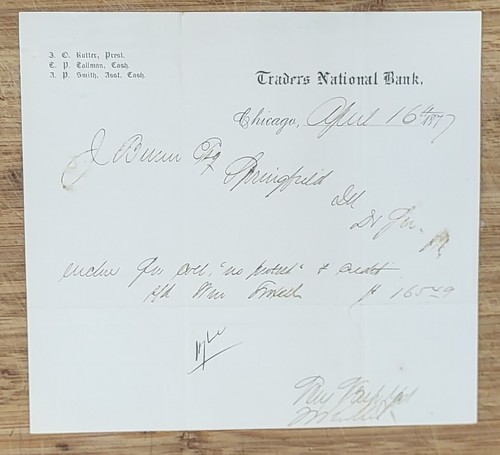 J. O. Rutter, Prest.
E. P. Tallman, Cash.
J. P. Smith, Asst. Cash.
Traders National Bank.
Chicago, April 16th 1877
J Bunn Esq
Springfield
Ill
Dr Sir
enclose for coll. "no protest" & credit
a/c Wm
$ 165 49